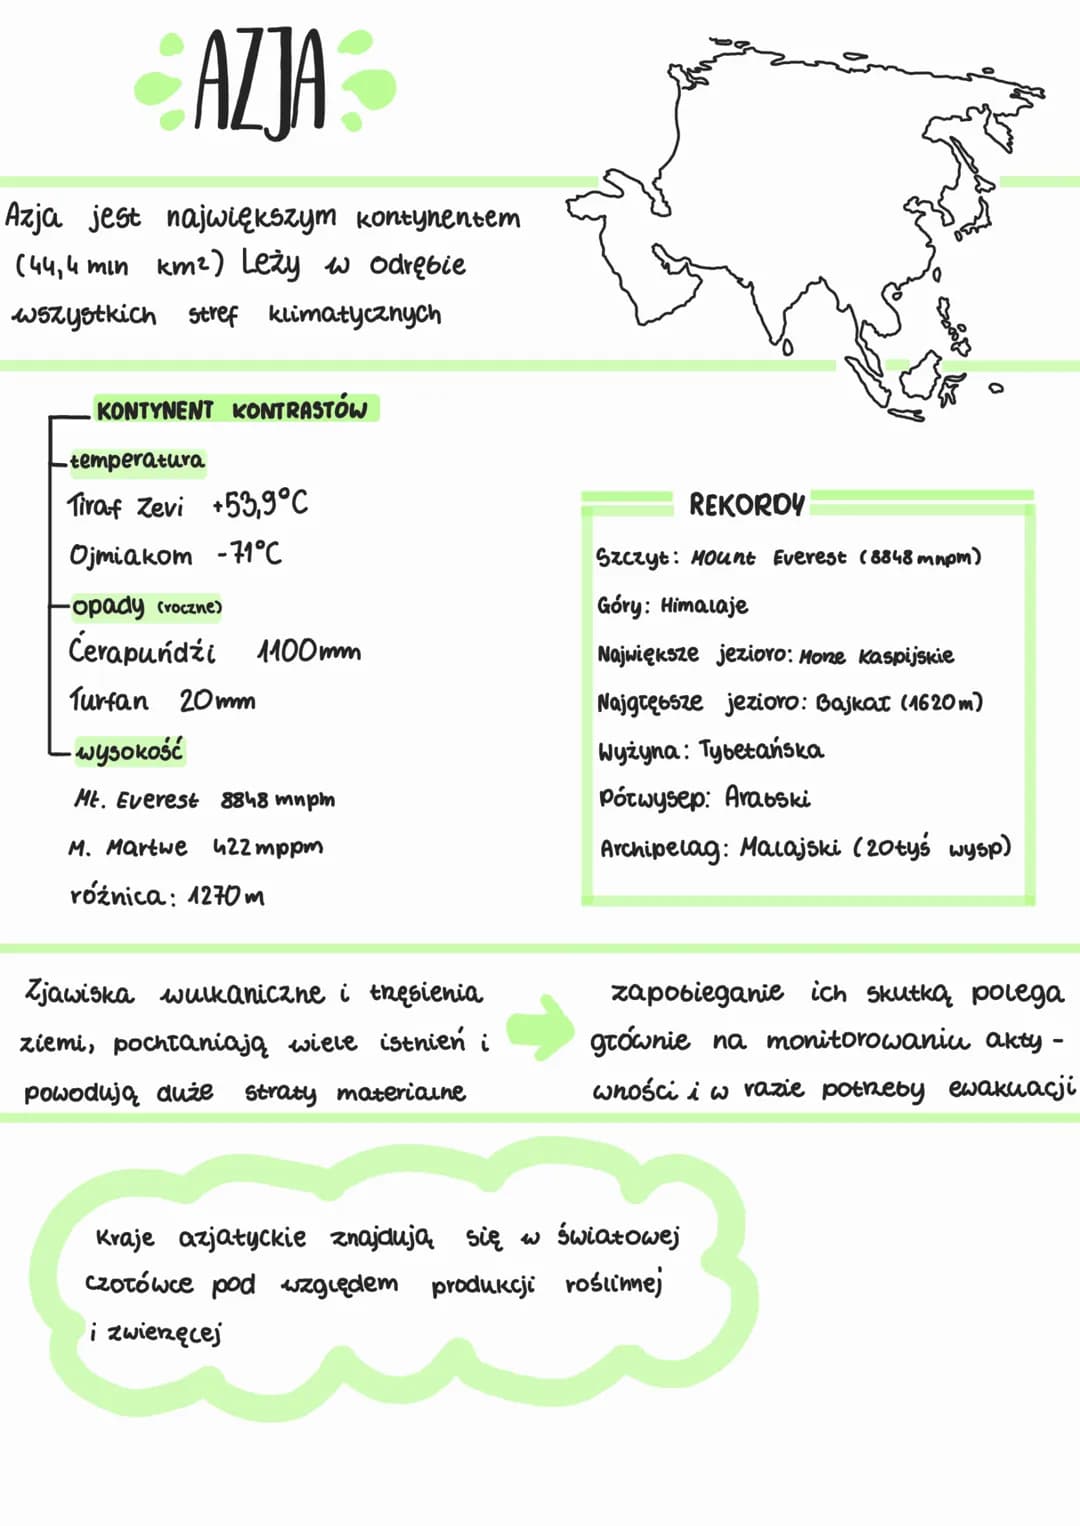 AZJA
Azja jest największym kontynentem
(44,4 mln km²) Leży w odrębie
wszystkich stref klimatycznych
KONTYNENT KONTRASTÓW
temperatura
Tiraf Zevi +53,9°C
Ojmiakom -71°C
opady (roczne)
Ćerapuńdźi 1100mm
Turfan 20mm
wysokość
Mt. Everest 8848 mnpm
M. Martwe 422mppm
różnica: 1270m
REKORDY
Szczyt: Mount Everest (8848 mnpm)
Góry: Himalaje
Największe jezioro: Morze Kaspijskie
Najgłębsze jezioro: Bajkał (1620m)
Wyżyna: Tybetańska
Półwysep: Arabski
Archipelag: Malajski (20tyś wysp)
Zjawiska wulkaniczne i trzęsienia
ziemi, pochłaniają wiele istnień i
powodują duże straty materialne
zapobieganie ich skutką polega
głównie na monitorowaniu akty-
wności i w razie potrzeby ewakuacji
Kraje azjatyckie znajdują się w światowej
czołówce pod względem produkcji roślinnej
i zwierzęcej